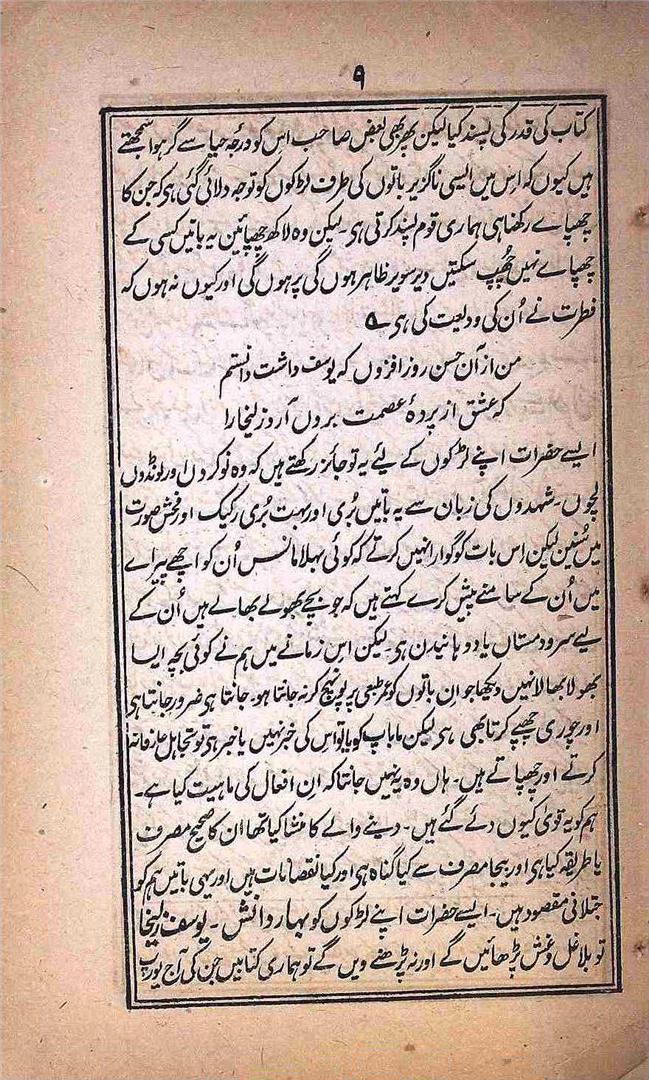 ۹
کتاب کی قدر کی پسند کیا لیکن پھر بھی بعض صاحب اس کو درجہ حیا سے گرہوا سمجھتے
ہیں کیوں کہ اس میں ایسی ناگزیر باتوں کی طرف لڑکوں کو توجہ دلائی گئی ہی کہ جن کا
چھپاے رکھنا ہی ہماری قوم پسند کرتی ہی۔ لیکن وہ لاکھ چھپائین یہ باتیں کسی کے
چھپاے نہیں چُھپ سکتیں دیر سویر ظاہر ہوں گی پر ہوں گی اور کیوں نہ ہوں کہ
فطرت نے اُن کی ودیعت کی ہی ؎
من از آن حسن روز افزوں کہ یوسف داشت دانستم
کہ عشق از پردۂ عصمت بروں آرد زلیخارا
ایسے حضرات اپنے لڑکوں کے لیئے یہ تو جائز رکھتے ہیں کہ وہ نوکروں اور لونڈوں
لچوں۔ شہدوں کی زبان سے یہ باتیں بُری اور بہت بُری رکیک اور فحش صورت
میں سُنین لیکن اِس بات کو گوارا نہیں کرتے کہ کوئی بہلا مانس اُن کو اچھے پیراے
میں اُن کے سامنے پیش کرے کہتے ہیں کہ جو بچے بھولے بھالے ہیں اُن کے
لیے سرود مستاں یاد دہانیدن ہی۔ لیکن اس زمانے میں ہم نے کوئی بچہ ایسا
بھولا بھالا نہیں دیکھا جو اِن باتوں کو عمر طبعی پر پونہچ کر نہ جانتا ہو۔ جانتا ہی ضرور جانتا ہی
اور چوری چھپے کرتا بھی ہی لیکن ماباپ کو یا تو اس کی خبر نہیں یا خبر ہی تو تجاہل عارفانہ
کرتے اور چھپاتے ہیں۔ ہاں وہ یہ نہیں جانتا کہ اِن افعال کی ماہیت کیا ہے۔
ہم کو یہ قویٰ کیوں دئے گئے ہیں۔ دینے والے کا منشا کیا تھا ان کا صحیح مصرف
یا طریقہ کیا ہی اور بیجا مصرف سے کیا گناہ ہی اور کیا نقصانات ہیں اور یہی باتیں ہم کو
جتلانی مقصود ہیں۔ ایسے حضرات اپنے لڑکوں کو بہار دانش۔ یوسف زلیخا
تو بلا غل و غش پڑھائیں گے اور نہ پڑھنے دیں گے تو ہماری کتابیں جن کی آج یورپ